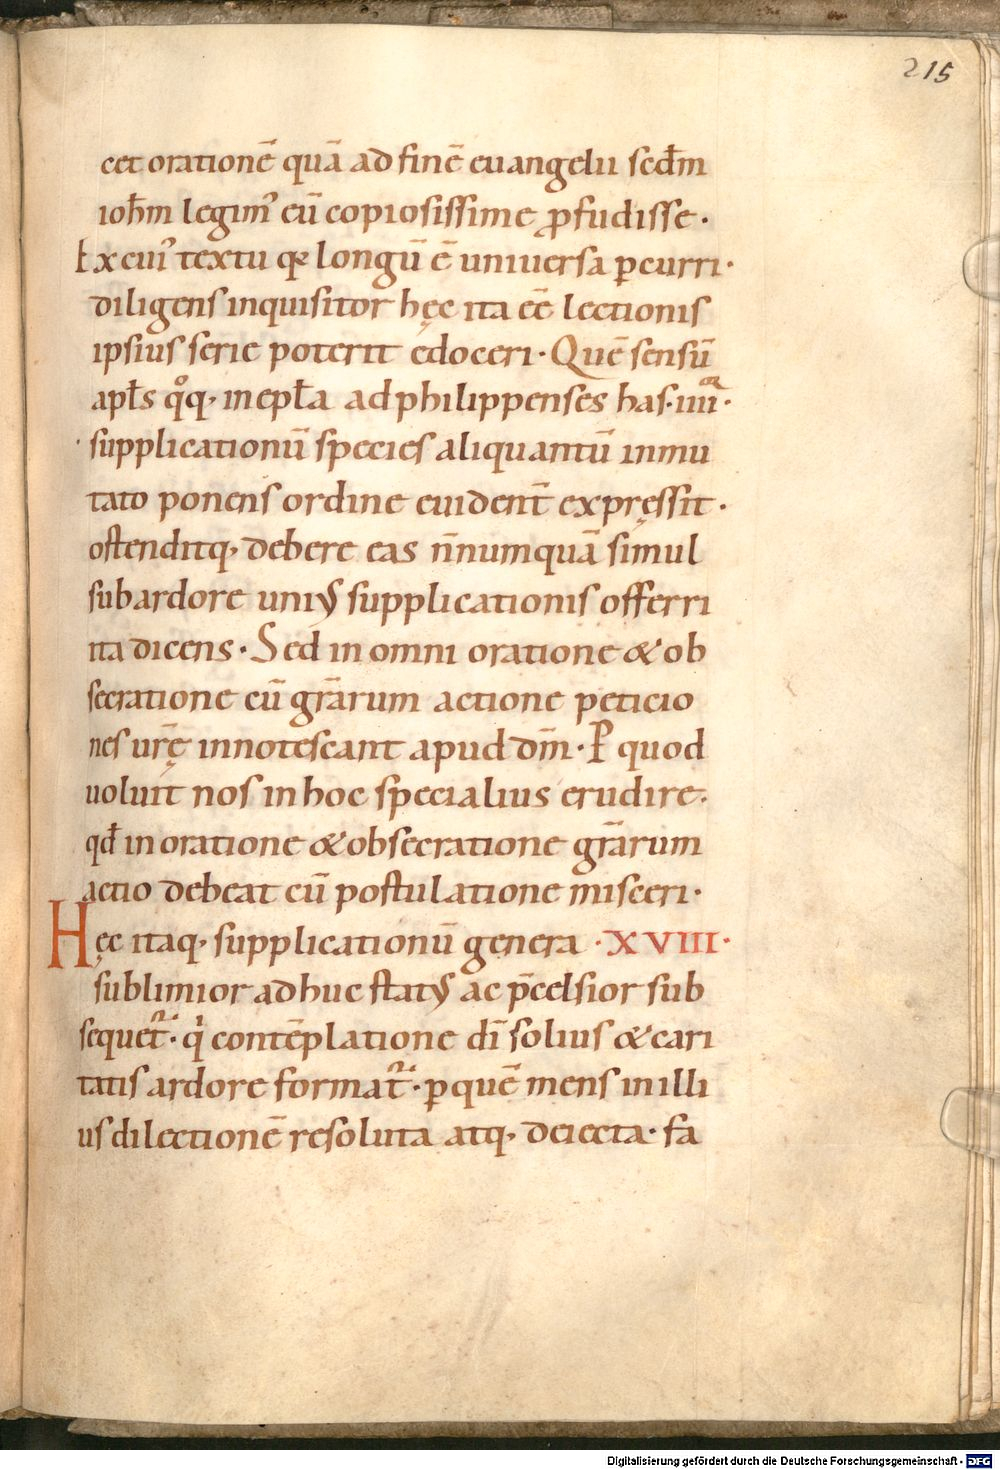 215
cet orationē quā ad finē euangelii scđm
ioħm legim᾽ eū copiosissime ꝓfudisse·
Ex cui᾽ textu qꝫ longū ē uniuersa ꝑcurri·
diligens inquisitor hęc ita eē lectionis
ipsius serie poterit edoceri· Quē sensū
apłs qͦq· in epła ad philippenses has·iiii·
supplicationū species aliquantū inmu
tato ponens ordine euident̄ expręssit·
ostenditq· debere eas n̄numquā simul
sub ardore uniꝰ supplicationis offerri
ita dicens· Sed in omni oratione & ob
secratione cū gr̄arum actione peticio
nes ur̄ę innotescant apud dm̄· P quod
uoluit nos in hoc specialius erudire·
qđ in oratione & obsecratione gr̄arum
actio debeat cū postulatione misceri·
Hęc itaq· supplicationū genera ·XVIII·
sublimior adhuc statꝰ ac p̄celsior sub
sequet᷑· qͥ contēplatione dī solius & cari
tatis ardore format᷑· ꝑ quē mens in illi
us dilectionē resoluta atq· deiecta· fa
Digitalisierung gefördert durch die Deutsche Forschungsgemeinschaft - DFG